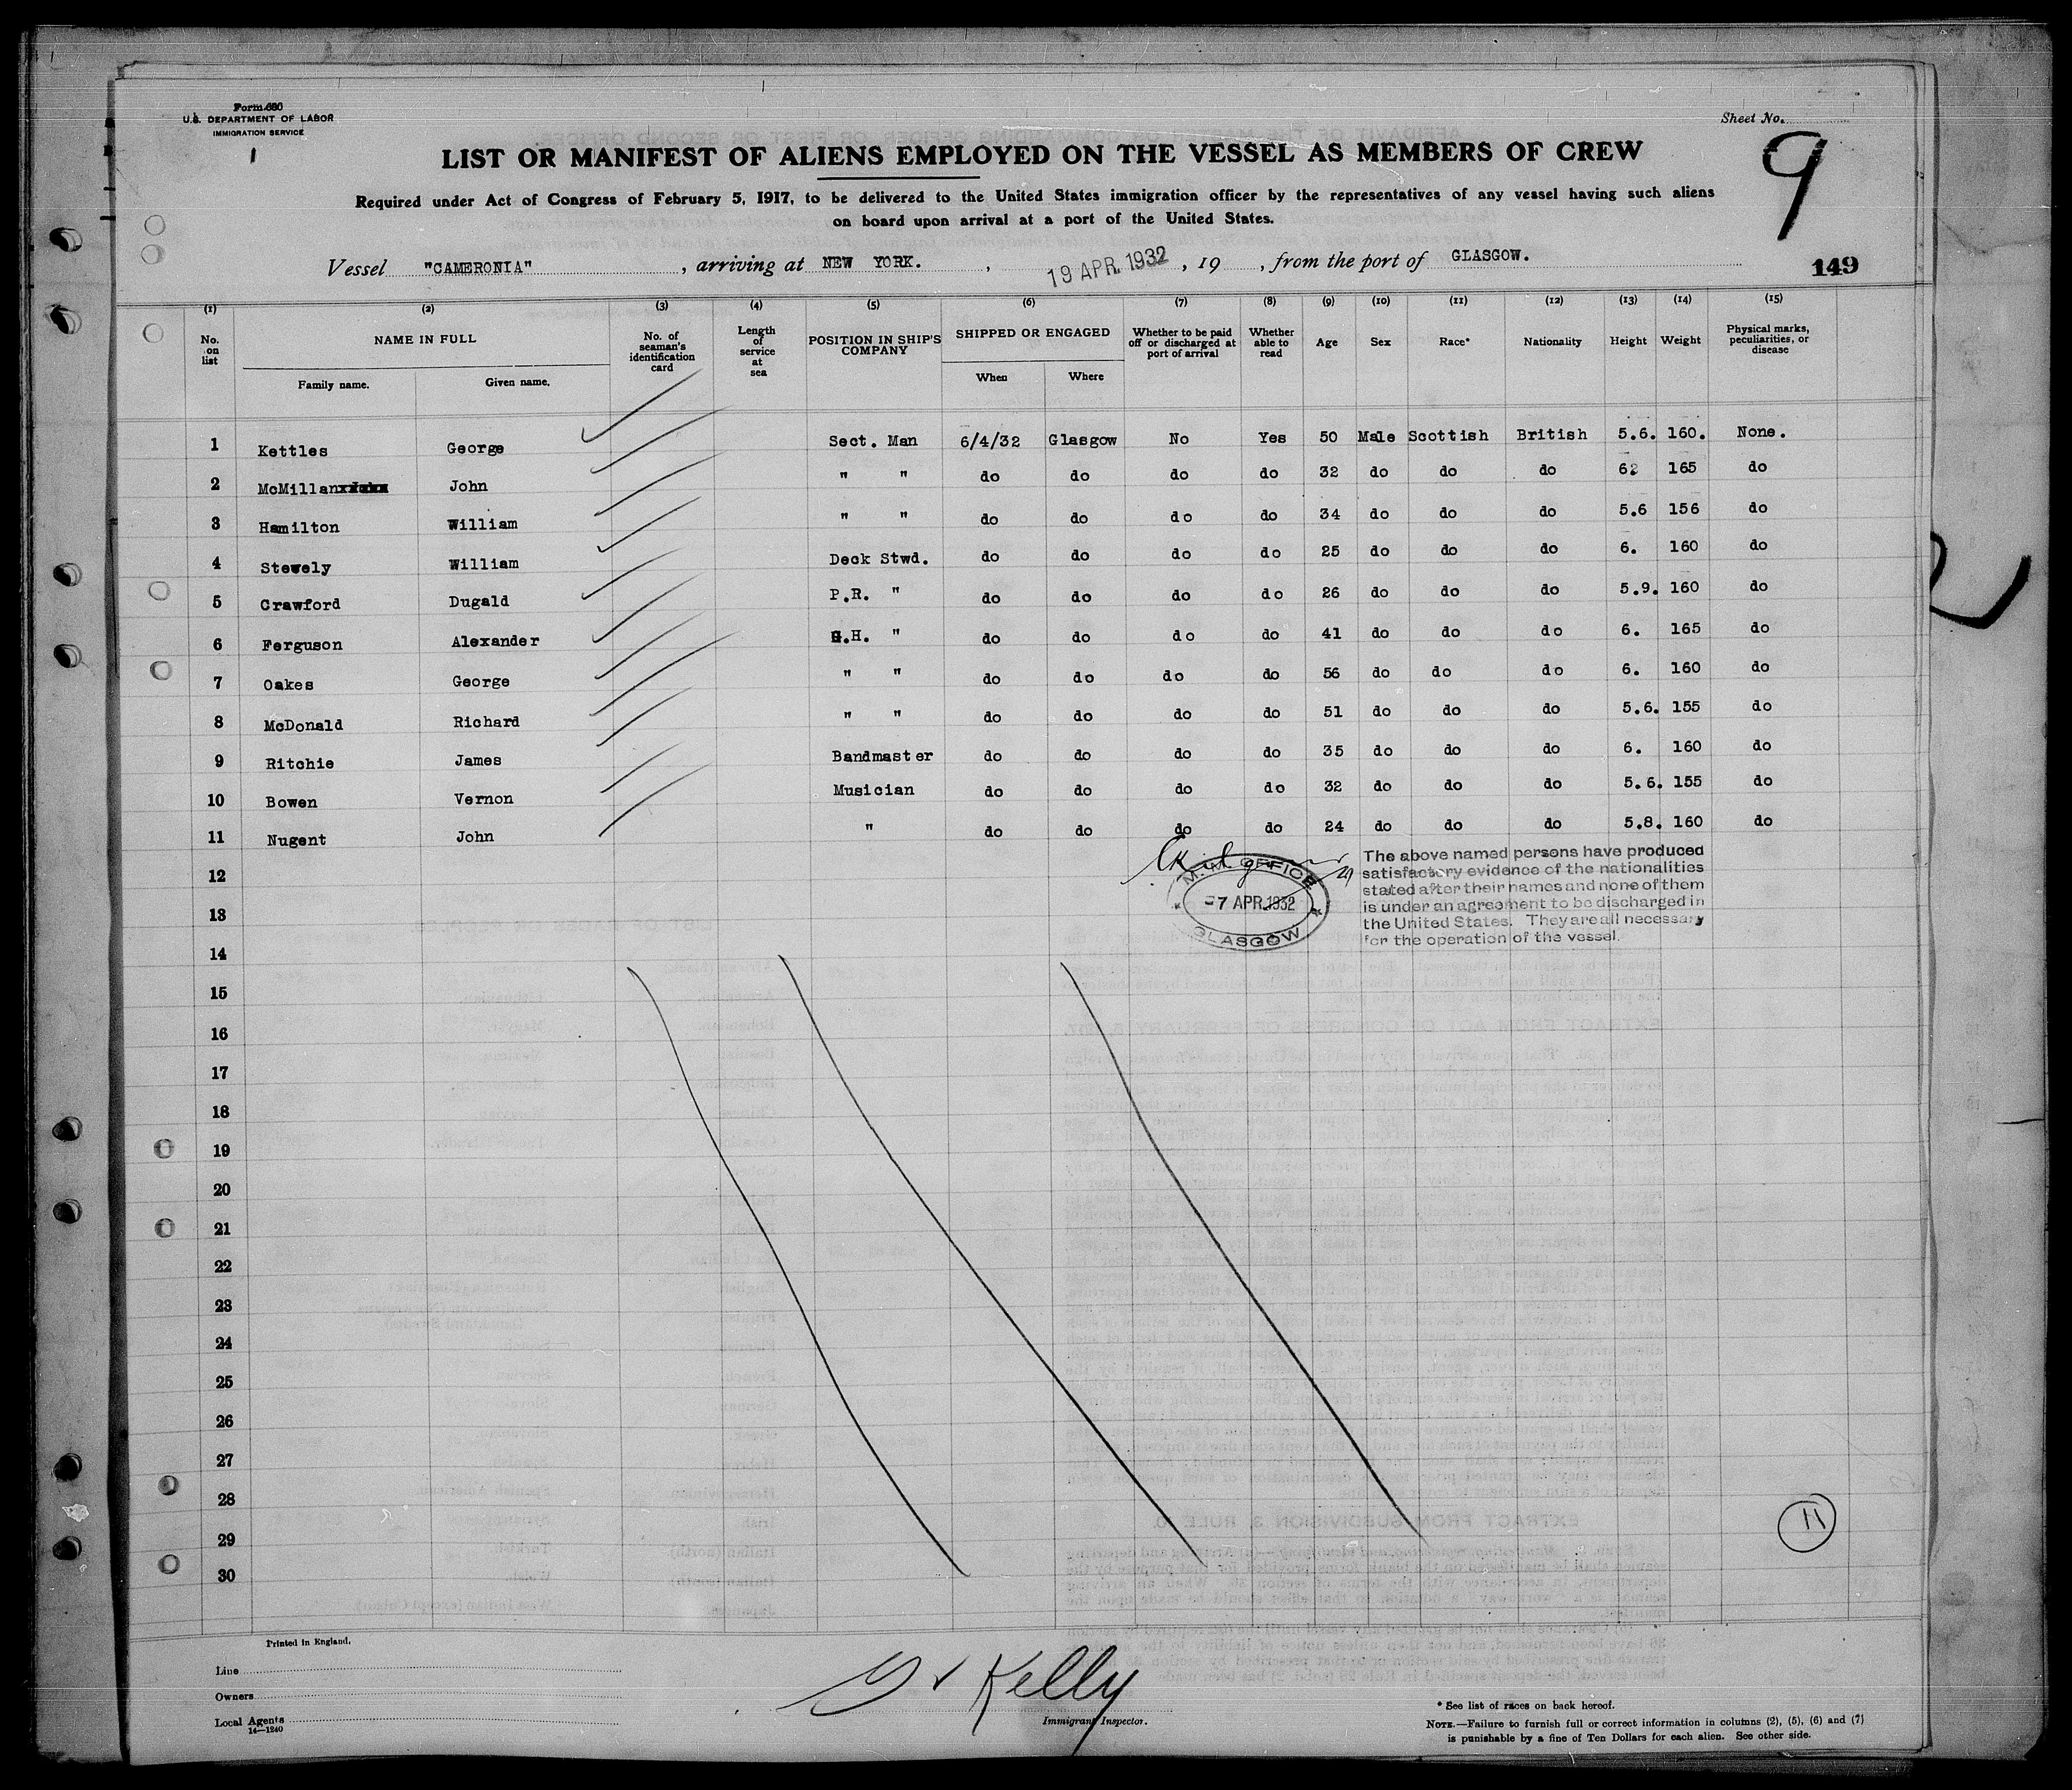 Form 680
U.S. DEPARTMENT OF LABOR
IMMIGRATION SERVICE
Sheet No.
9
LIST OR MANIFEST OF ALIENS EMPLOYED ON THE VESSEL AS MEMBERS OF CREW
Required under Act of Congress of February 5, 1917, to be delivered to the United States immigration officer by the representatives of any vessel having such aliens
on board upon arrival at a port of the United States.
Vessel "CAMERONIA", arriving at NEW YORK., 19 APR. 1932, 19 , from the port of GLASGOW.
149
(1) (2) (3) (4) (5) (6) (7) (8) (9) (10) (11) (12) (13) (14) (15)
No. on list NAME IN FULL No. of seaman's identification card Length of service at sea POSITION IN SHIP'S COMPANY SHIPPED OR ENGAGED Whether to be paid off or discharged at port of arrival Whether able to read Age Sex Race* Nationality Height Weight Physical marks, peculiarities, or disease
Family name. Given name. When Where
1 Kettles George Sect. Man 6/4/32 Glasgow No Yes 50 Male Scottish British 5.6. 160. None.
2 McMillan John " " do do do do 32 do do do 62 165 do
3 Hamilton William " " do do do do 34 do do do 5.6 156 do
4 Stewely William Deck Stwd. do do do do 25 do do do 6. 160 do
5 Crawford Dugald P.R. " do do do do 26 do do do 5.9. 160 do
6 Ferguson Alexander .H. " do do do do 41 do do do 6. 165 do
7 Oakes George " " do do do do 56 do do do 6. 160 do
8 McDonald Richard " " do do do do 51 do do do 5.6. 155 do
9 Ritchie James Bandmaster do do do do 35 do do do 6. 160 do
10 Bowen Vernon Musician do do do do 32 do do do 5.6. 155 do
11 Nugent John " do do do do 24 do do do 5.8. 160 do
M.M. OFFICE
-7 APR 1932
GLASGOW
The above named persons have produced
satisfactory evidence of the nationalities
stated after their names and none of them
is under an agreement to be discharged in
the United States. They are all necessary
for the operation of the vessel.
12
13
14
15
16
17
18
19
20
21
22
23
24
25
26
27
28
29
30
11
Printed in England.
Line
Owners
Local Agents
14—1240
Kelly
Immigrant Inspector.
* See list of races on back hereof.
NOTE.—Failure to furnish full or correct information in columns (2), (5), (6) and (7)
is punishable by a fine of Ten Dollars for each alien. See other side.